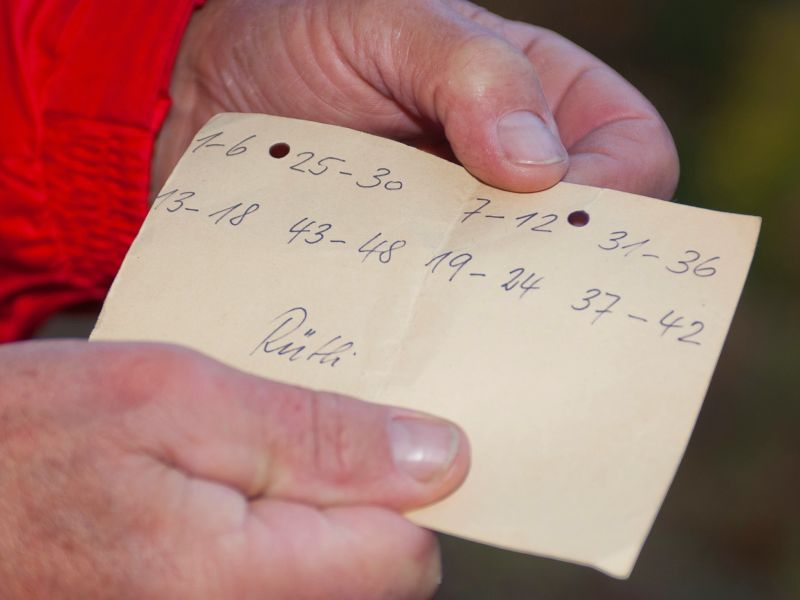 1-6 25-30 7-12 31-36
13-18 43-48 19-24 37-42
Rütli